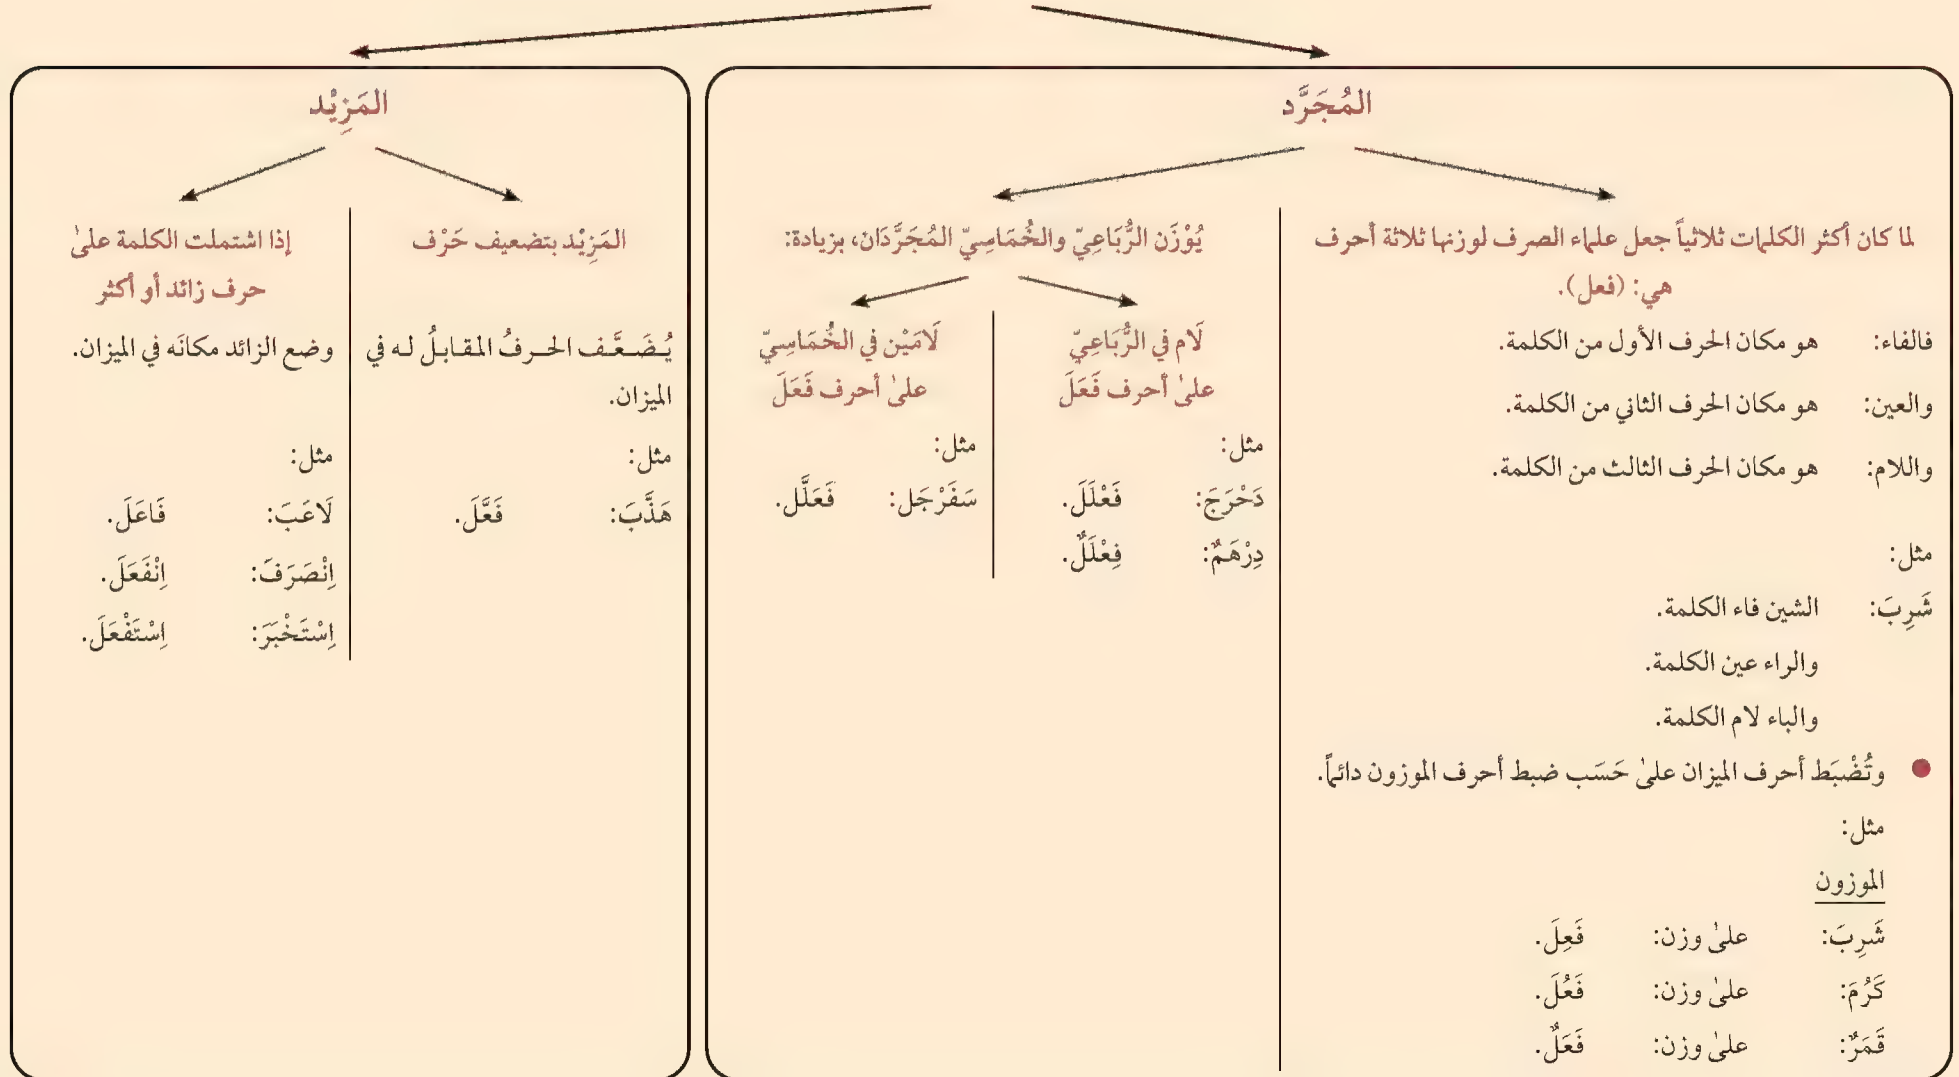 المُجَرَّد
لما كان أكثر الكلمات ثلاثياً جعل علماء الصرف لوزنها ثلاثة أحرف
هي: (فعل).
فالفاء: هو مكان الحرف الأول من الكلمة.
والعين: هو مكان الحرف الثاني من الكلمة.
واللام: هو مكان الحرف الثالث من الكلمة.
مثل:
شَرِبَ: الشين فاء الكلمة.
والراء عين الكلمة.
والباء لام الكلمة.
● وتُضْبَط أحرف الميزان علىٰ حَسَب ضبط أحرف الموزون دائماً.
مثل:
الموزون
شَرِبَ: علىٰ وزن: فَعِلَ.
كَرُمَ: علىٰ وزن: فَعُلَ.
قَمَرٌ: علىٰ وزن: فَعَلٌ.
يُوْزَن الرُّبَاعِيّ والخُمَاسِيّ المُجَرَّدَان، بزيادة:
لَام في الرُّبَاعِيّ
علىٰ أحرف فَعَلَ
مثل:
دَحْرَجَ: فَعْلَلَ.
دِرْهَمٌ: فِعْلَلٌ.
لَامَيْن في الخُمَاسِيّ
علىٰ أحرف فَعَلَ
مثل:
سَفَرْجَل: فَعَلَّل.
المَزِيْد
المَزِيْد بتضعيف حَرْف
يُـضَـعَّـف الحـرفُ المقابلُ لـه في
الميزان.
مثل:
هَذَّبَ: فَعَّلَ.
إذا اشتملت الكلمة علىٰ
حرف زائد أو أكثر
وضع الزائد مكانَه في الميزان.
مثل:
لَاعَبَ: فَاعَلَ.
اِنْصَرَفَ: اِنْفَعَلَ.
اِسْتَخْبَرَ: اِسْتَفْعَلَ.